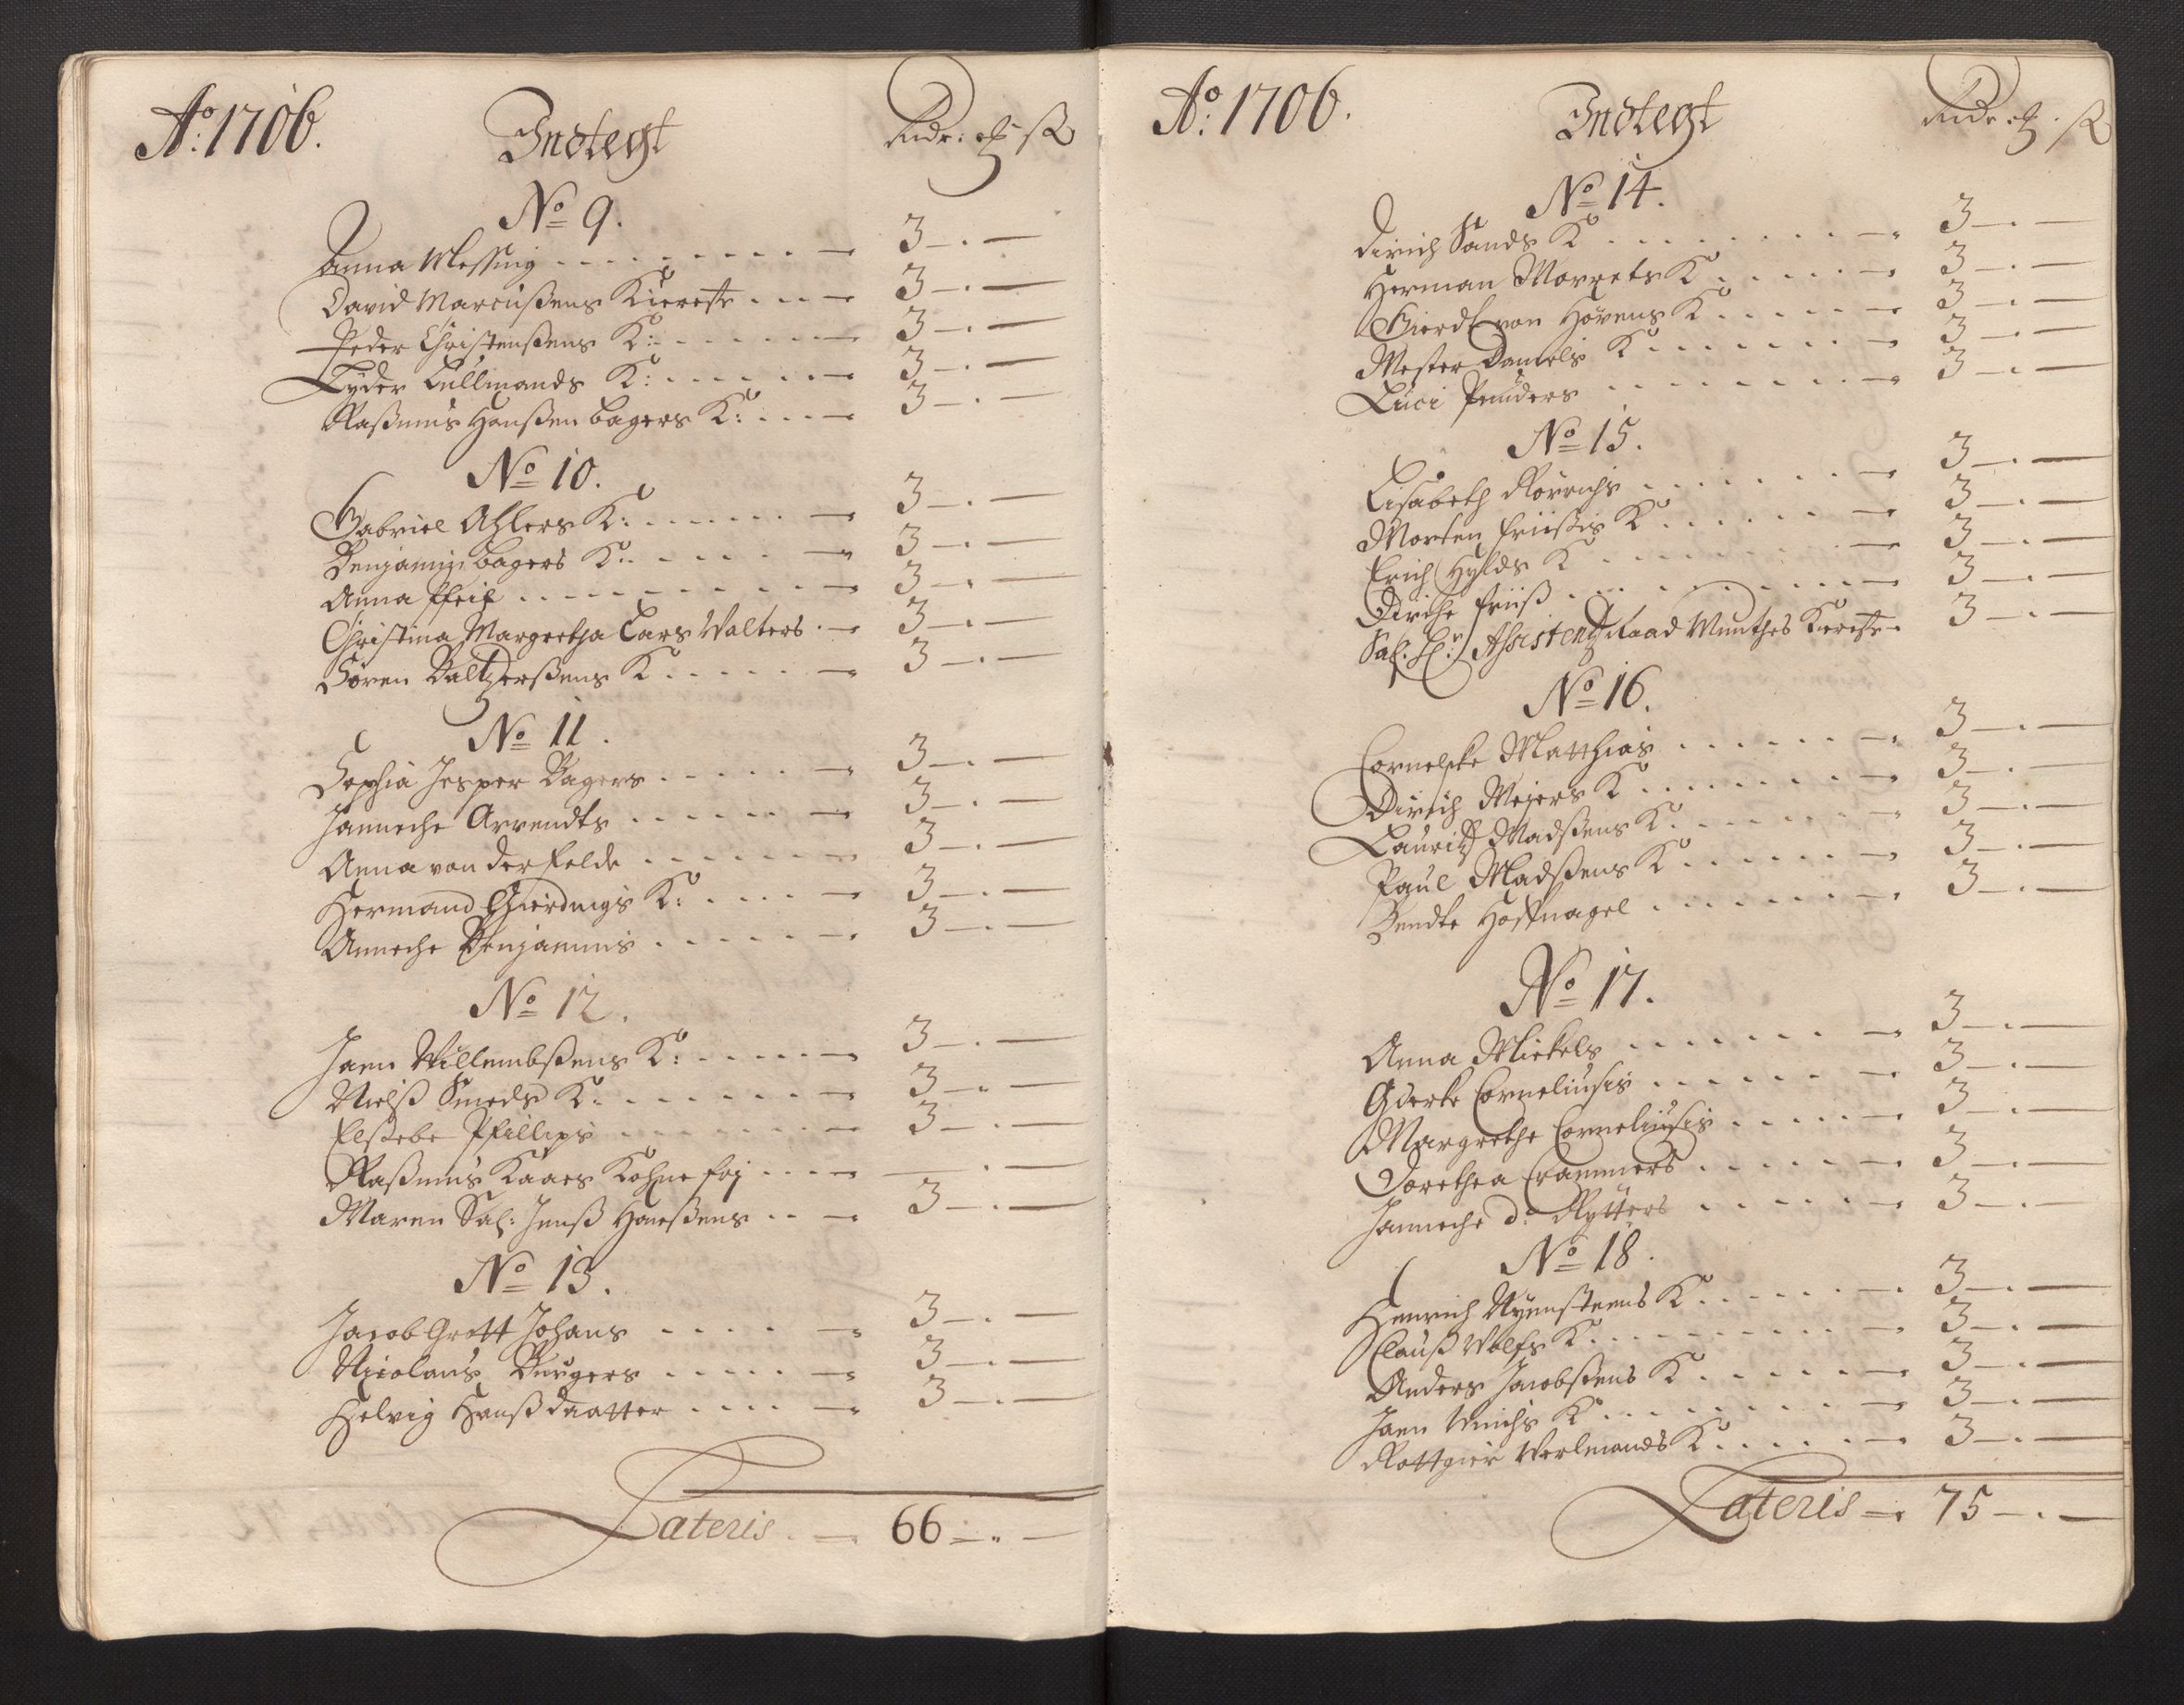 Ao: 1706. Indtegt Rdr: ℳ ß
No 9.
Anna Messing . . . . . . . . — 3 — . —
David Marcußens Kiereste . . . — 3 — . —
Peder Christenßens K: . . . . . . — 3 — . —
Lyder Cullmands K: . . . . . . — 3 — . —
Raßmus Hanßen bagers K: . . . — 3 — . —
No 10.
Gabriel Ahlers K: . . . . . . — 3 — . —
Benjamin bagers K: . . . . . — 3 — . —
Anna Pfeil . . . . . . . . . — 3 — . —
Christina Margretha Lars Walters . — 3 — . —
Søren Baltzerßens K . . . . . — 3 — . —
No 11.
Sophia Jesper Bagers . . . . . — 3 — . —
Janneche Arrendts . . . . . . — 3 — . —
Anna von der Felde . . . . . . . 3 — . —
Hermand Gierdings K: . . . . — 3 — . —
Anneche Benjamins . . . . . — 3 — . —
No 12.
Jaen Willembßens K: . . . . . — 3 — . —
Nielß Smeds K: . . . . . . . — 3 — . —
Elsebe Phillips . . . . . . . — 3 — . —
Raßmus Kaaes Kohne foj . . . — — . —
Maren Sal: Jenß Hanßens . . — 3 — . —
No 13.
Jacob Grott Johans . . . . — 3 — . —
Nicolaus Burgers . . . . . — 3 — . —
Helvig Hanßdaatter . . . . — 3 — . —
Lateris . — 66 — . —
Ao: 1706. Indtegt Rdr ℳ . ß
No 14.
Dirich Sands K . . . . . . . . — 3 — . —
Herman Morrets K . . . . . — 3 — . —
Gierdt von Hovens K . . . . . — 3 — . —
Mester Daniels K . . . . . . . — 3 — . —
Luci Penders . . . . . . . . — 3 — . —
No 15.
Lisabeth Rorrichs . . . . . . . — 3 — . —
Morten Friißes K . . . . . . — 3 — . —
Erich Hylds K . . . . . . . . — 3 — . —
Dirche Friiß . . . . . . . . . — 3 — . —
Sal: Hr: Assistentz Raad Munthes Kiereste — 3 — . —
No 16.
Cornelske Matthias . . . . . . — 3 — . —
Dirich Meyers K . . . . . . . — 3 — . —
Lauritz Madßens K . . . . . . — 3 — . —
Paul Madßens K . . . . . . — 3 — . —
Bendte Hoffnagel . . . . . . . — 3 — . —
No 17.
Anna Mickels . . . . . . . — 3 — . —
Gierke Corneliusis . . . . . . — 3 — . —
Margrethe Corneliusis . . . . . — 3 — . —
Dorethea Crammers . . . . . — 3 — . —
Janneche d: Rytters . . . . . — 3 — . —
No 18.
Henrich Nyensteens K . . . . . — 3 — . —
Clauß Wolfs K . . . . . . . . — 3 — . —
Anders Jacobßens K . . . . . — 3 — . —
Jaen Unichs K . . . . . . . . — 3 — . —
Rottgier Werlmands K . . . . . — 3 — . —
Lateris — 75 — . —